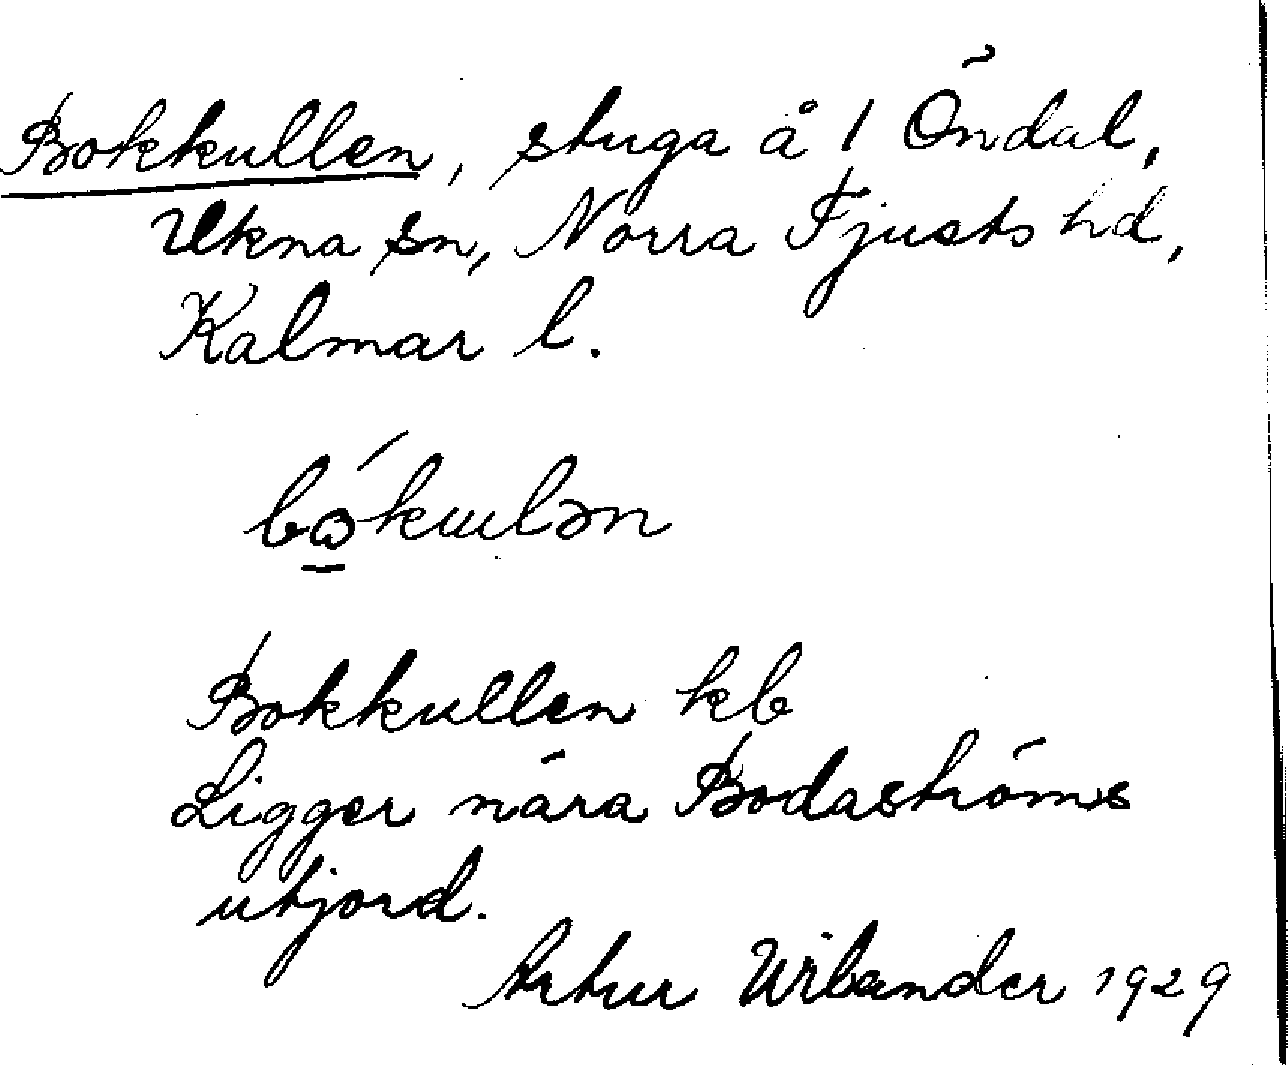 Bokkullen, stuga å 1 Öndal,
Ukna sn, Norra Tjusts hd,
Kalmar l.
bo̱´kuulən
Bokkullen kb
Ligger nära Bodaströms
utjord.
Artur Wilander 1929